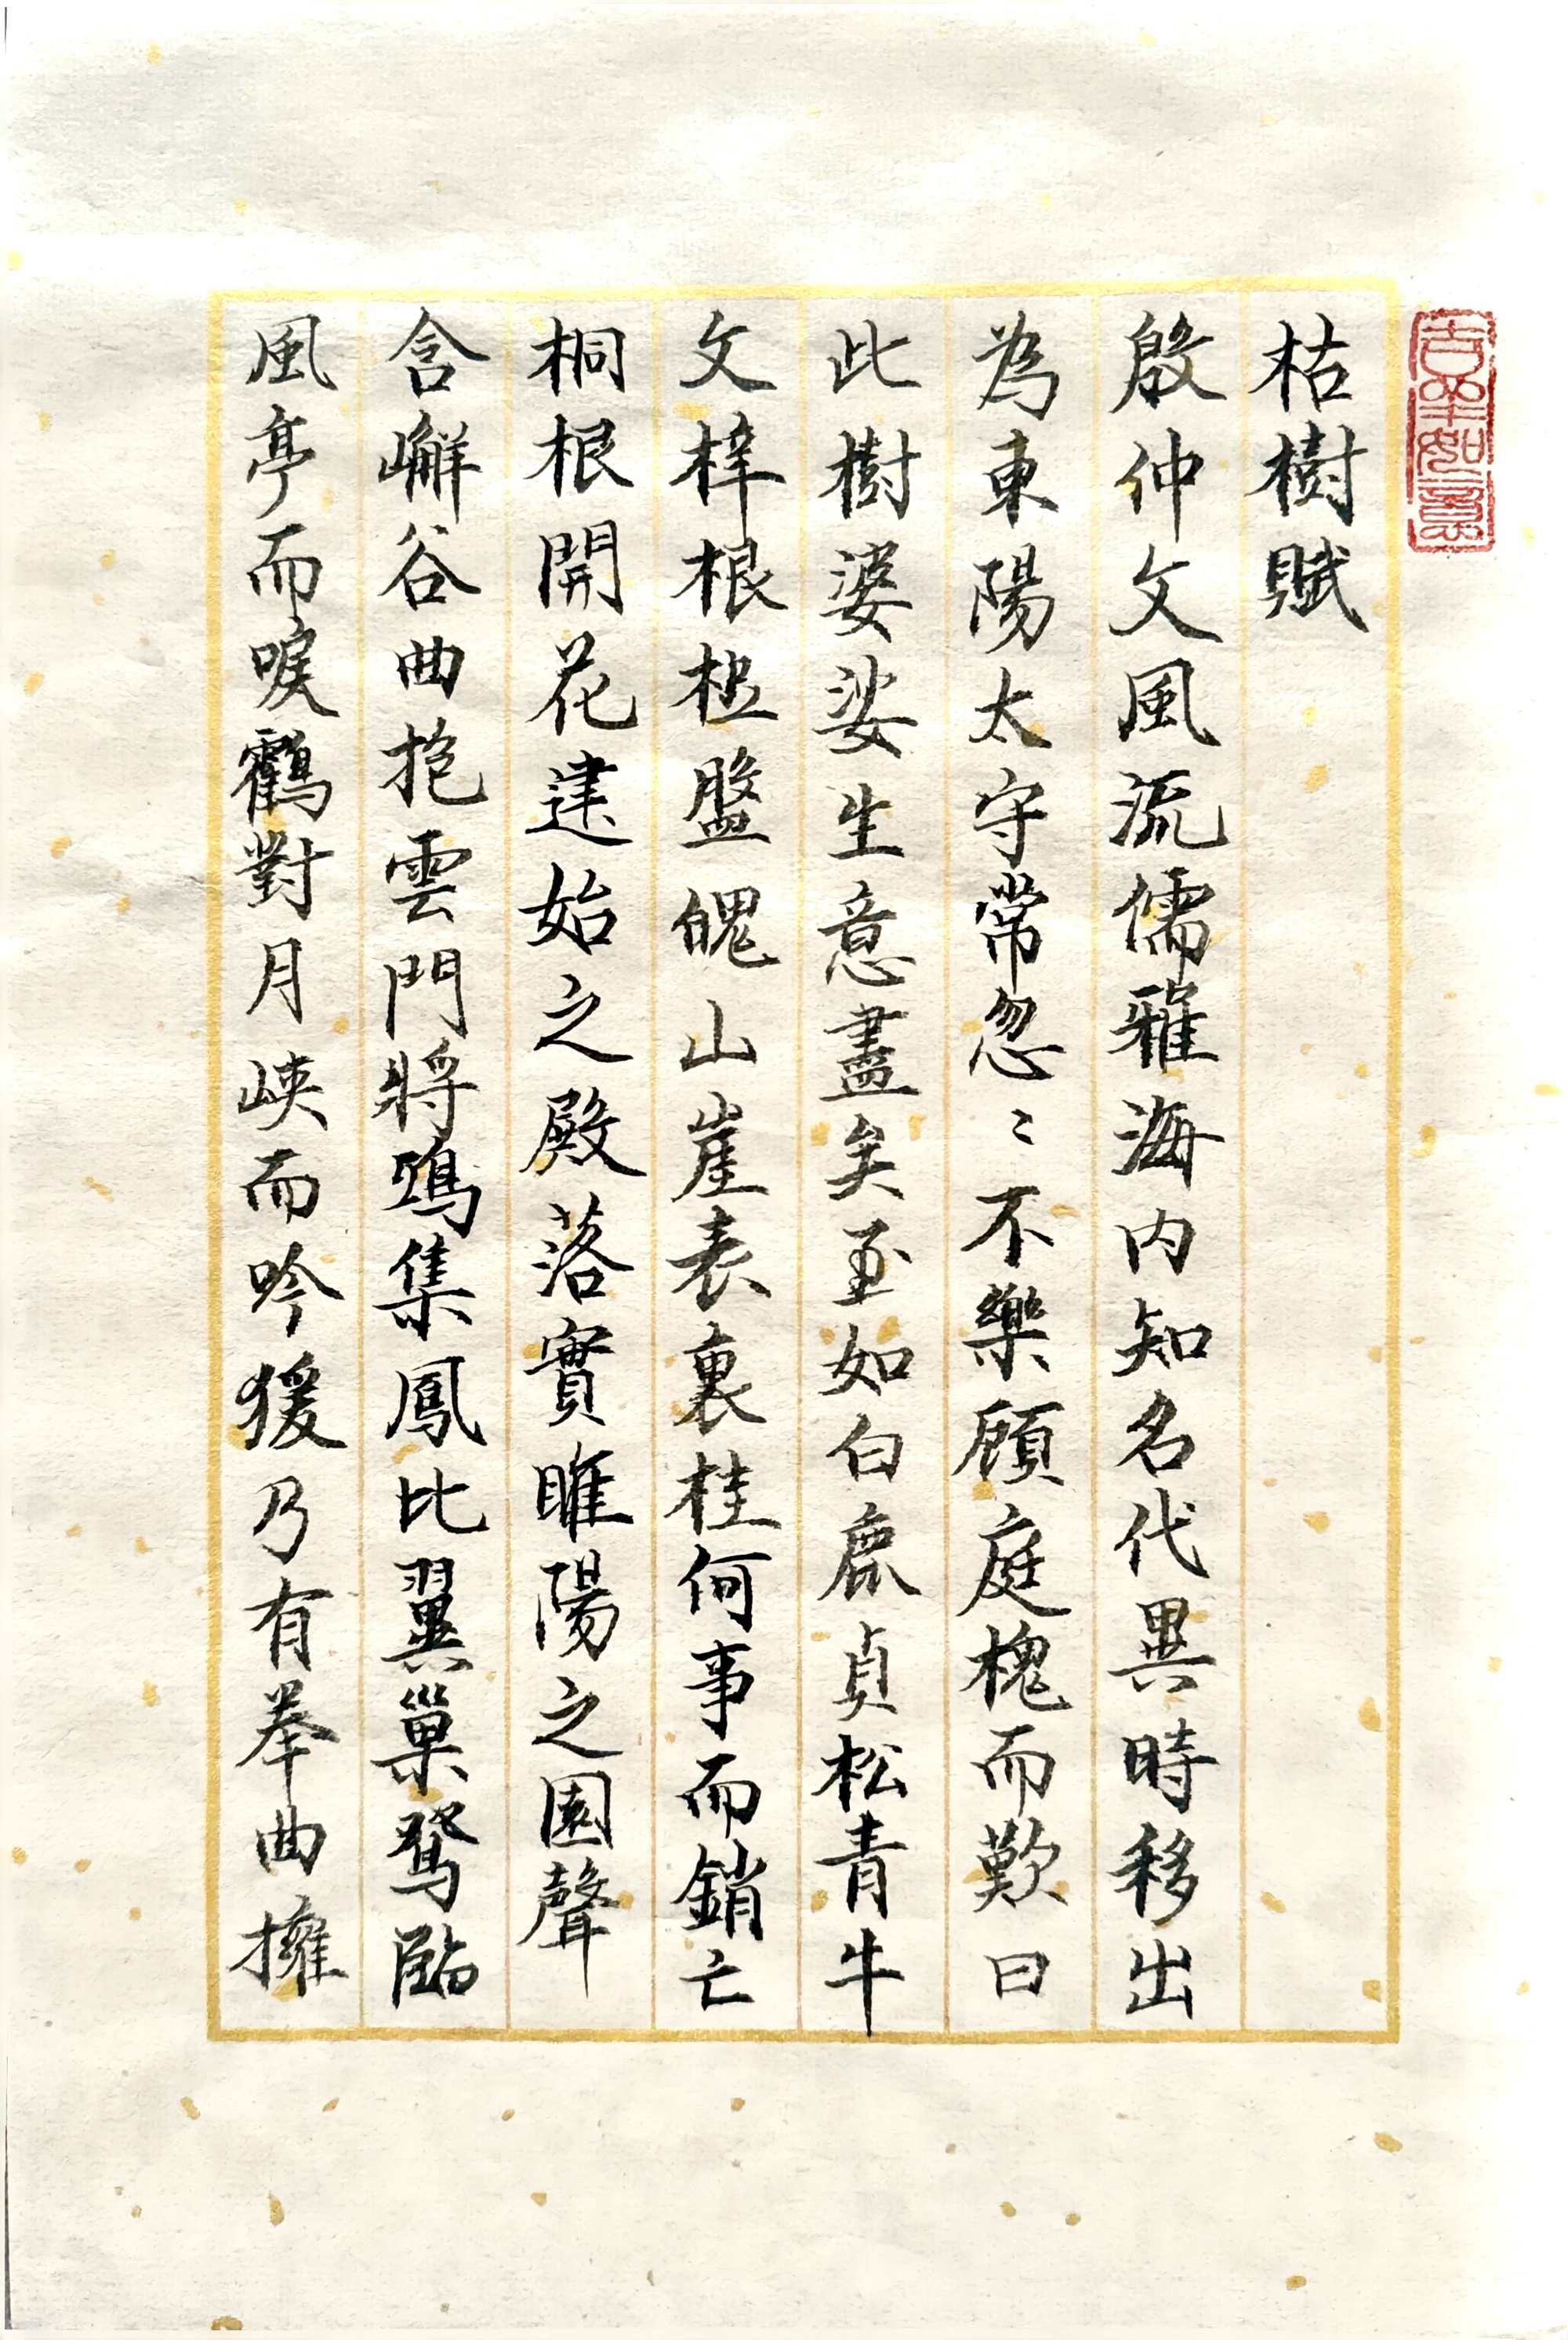 吉羊如意
枯樹賦
殷仲文風流儒雅海内知名代異時移出
為東陽太守常忽〻不樂顧庭槐而歎曰
此樹婆娑生意盡矣至如白鹿貞松青牛
文梓根柢盤魄山崖表裏桂何事而銷亡
桐根開花建始之殿落實睢陽之園聲
含嶰谷曲抱雲門將鶵集鳳比翼巢鴛臨
風亭而唳鶴對月峽而吟猨乃有拳曲擁